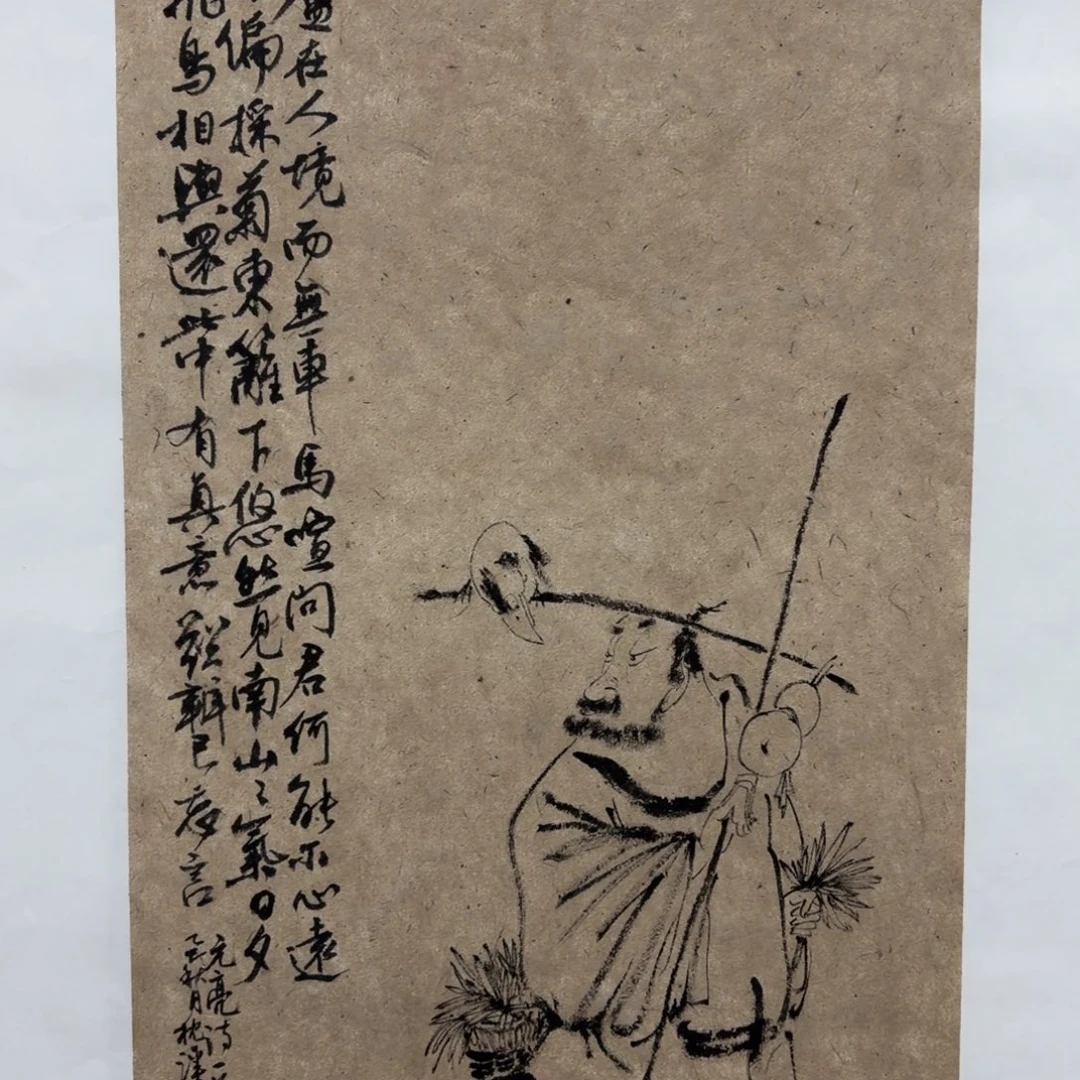 廬在人境而無車馬喧問君何能尔心遠
偏採菊東籬下悠然見南山々氣日夕
飛鳥相與還此中有真意欲辨已忘言
元亮诗一
秋月